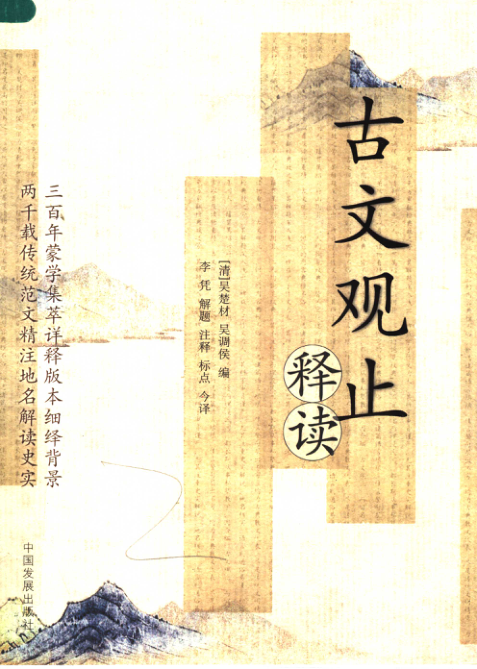 古文观止
释读
[清]吴楚材 吴调侯 编
李凭 解题 注释 标点 今译
三百年蒙学集萃详释版本细绎背景
两千载传统范文精注地名解读史实
中国发展出版社